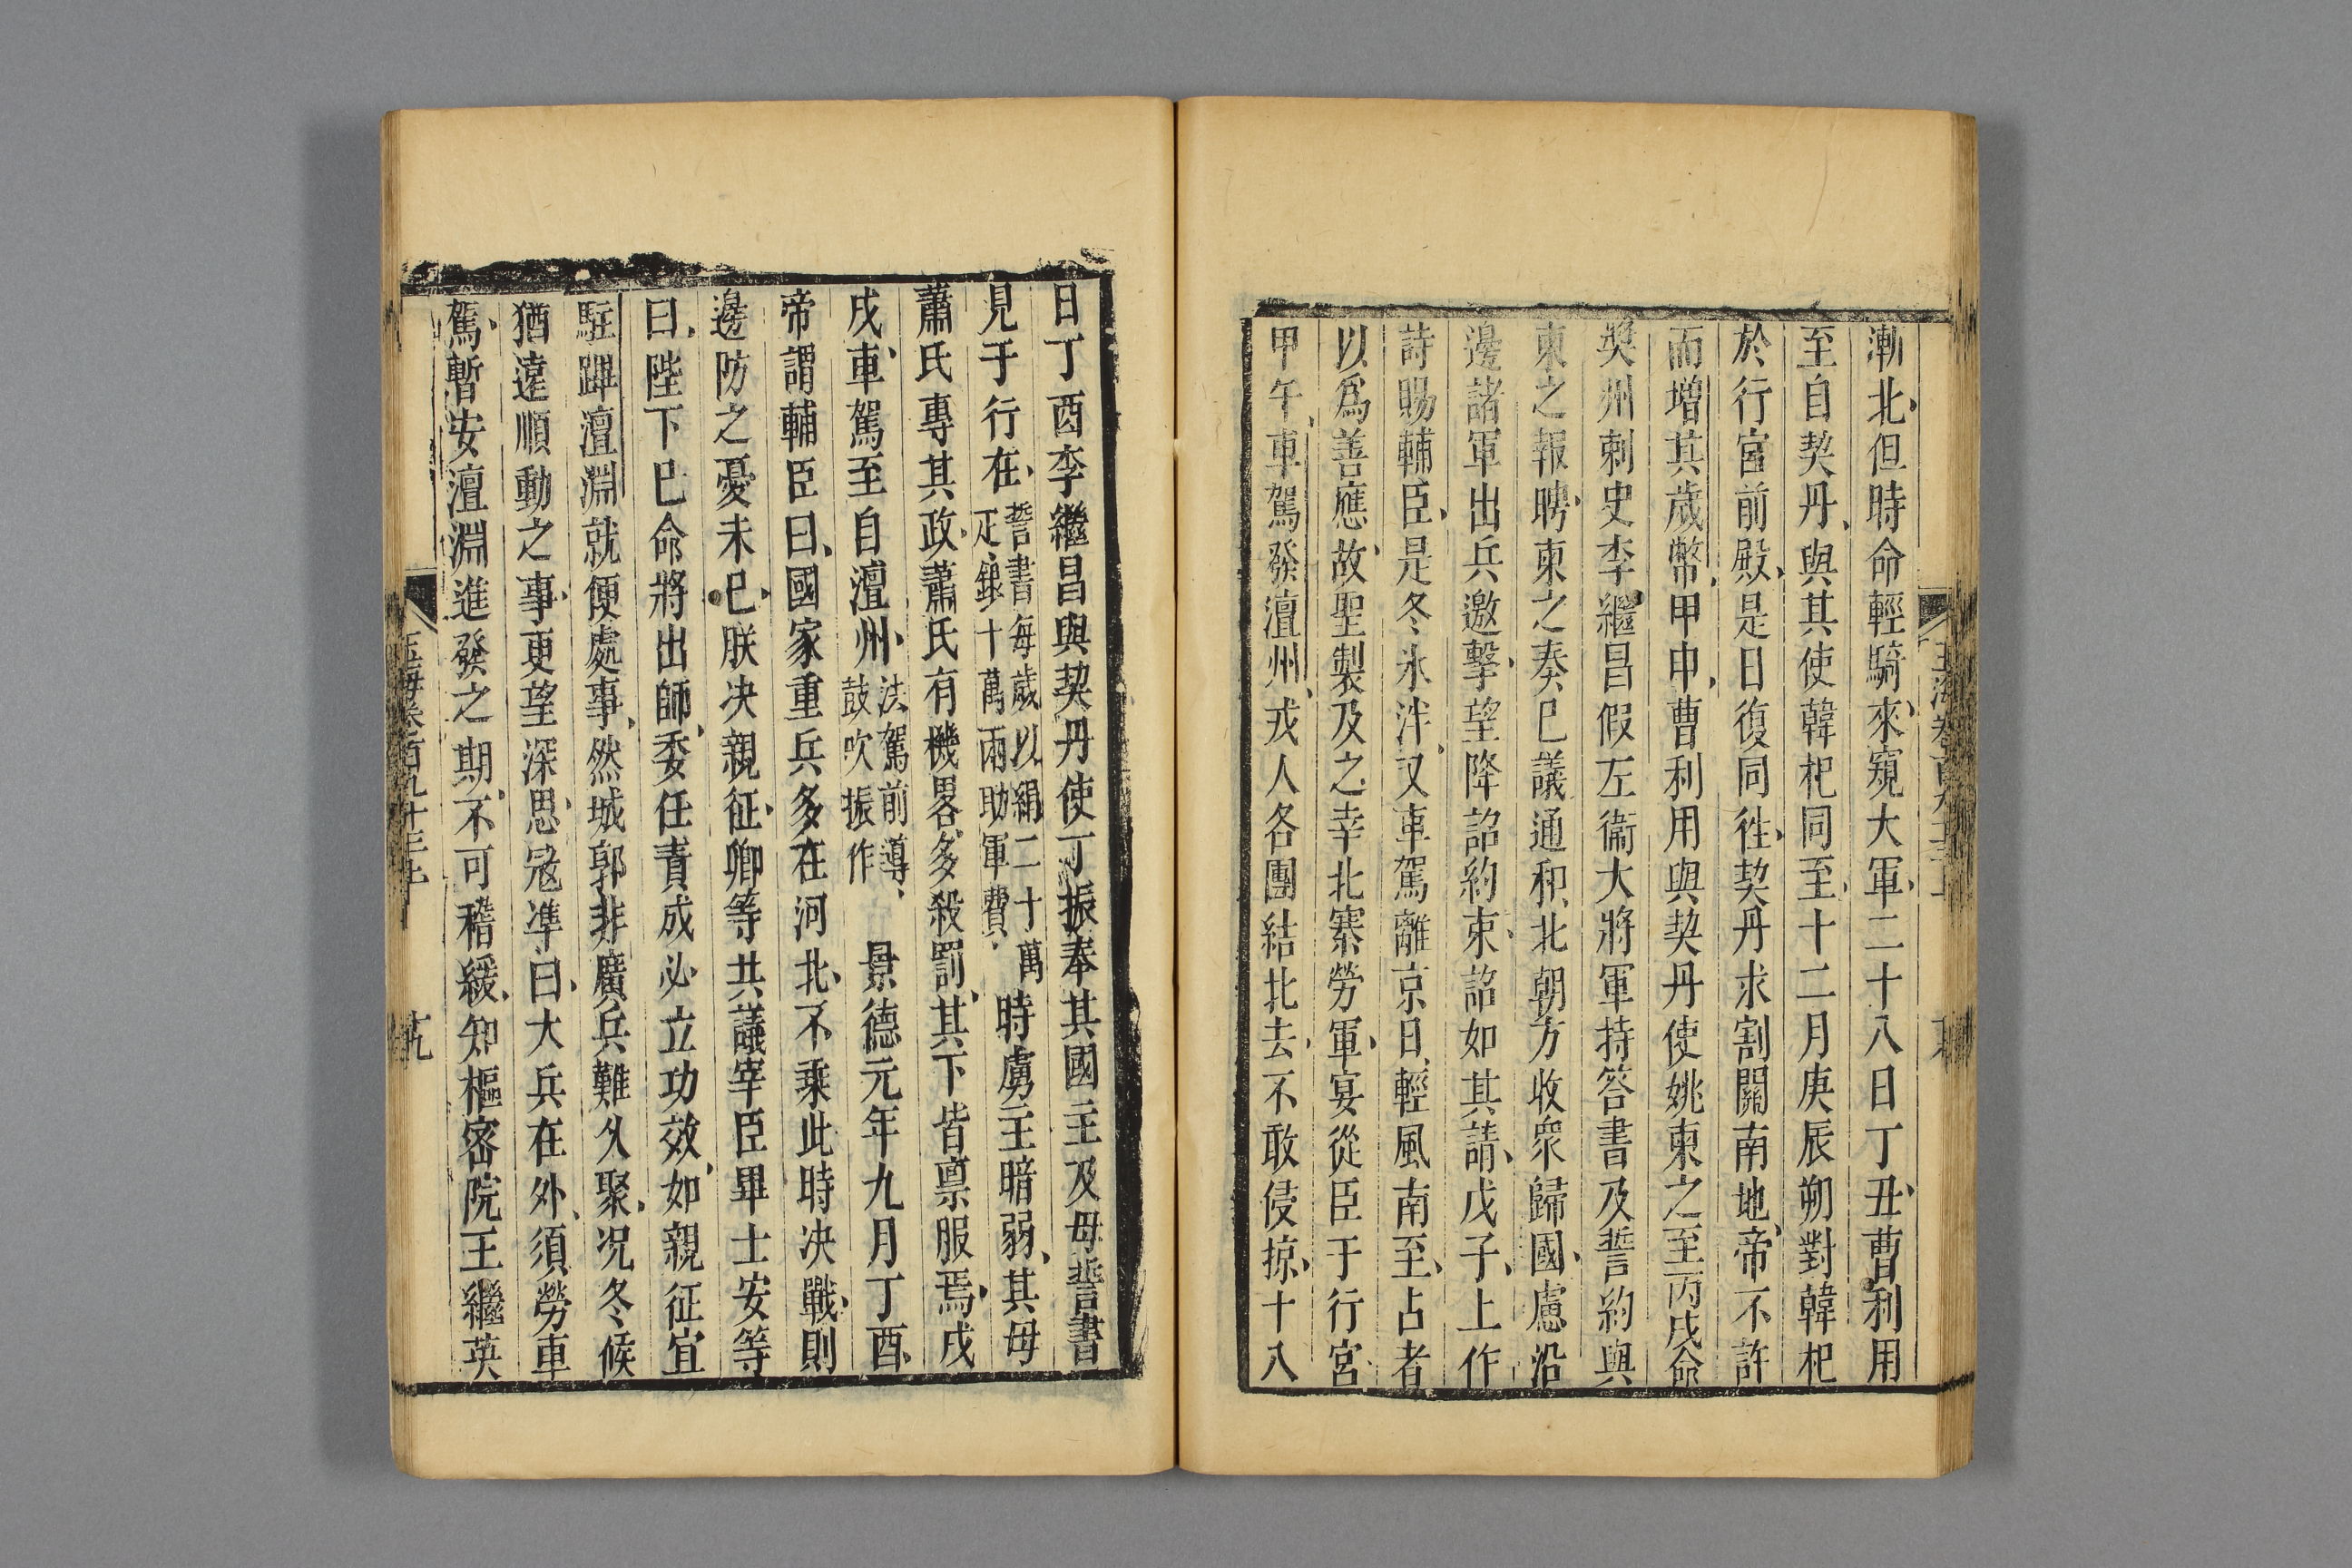 漸北但時命輕騎來窺大軍二十八日丁丑曹利用
至自契丹與其使韓杞同至十二月庚辰朔對韓杞
於行宮前殿是日復同徃契丹求割關南地帝不許
而增其歲幣甲申曹利用與契丹使姚東之至丙戌命
奬州刺史李繼昌假左衞大將軍持答書及誓約與
東之報聘東之奏巳議通和北朝方收衆歸國慮沿
邊諸軍出兵邀擊望降詔約束詔如其請戊子上作
詩賜輔臣是冬氷泮又車駕離京日輕風南至占者
以爲善應故聖製及之幸北寨勞軍宴從臣于行宮
甲午車駕發澶州戎人各團結北去不敢侵掠十八
日丁酉李繼昌與契丹使丁振奉其國主及母誓書
見于行在誓書每歲以絹二十萬
疋銀十萬兩助軍費時虜主暗弱其母
蕭氏專其政蕭氏有機畧多殺罰其下皆禀服焉戊
戌車駕至自澶州法駕前導
鼓吹振作景德元年九月丁酉
帝謂輔臣曰國家重兵多在河北不乘此時决戰則
邊防之憂未巳朕决親征卿等共議宰臣畢士安等
曰陛下巳命將出師委任責成必立功效如親征宜
駐蹕澶淵就便處事然城郭非廣兵難久聚况冬候
猶遠順動之事更望深思寇準曰大兵在外須勞車
駕暫安澶淵進發之期不可稽緩知樞密院王繼英
玉海卷百九十三上
十九